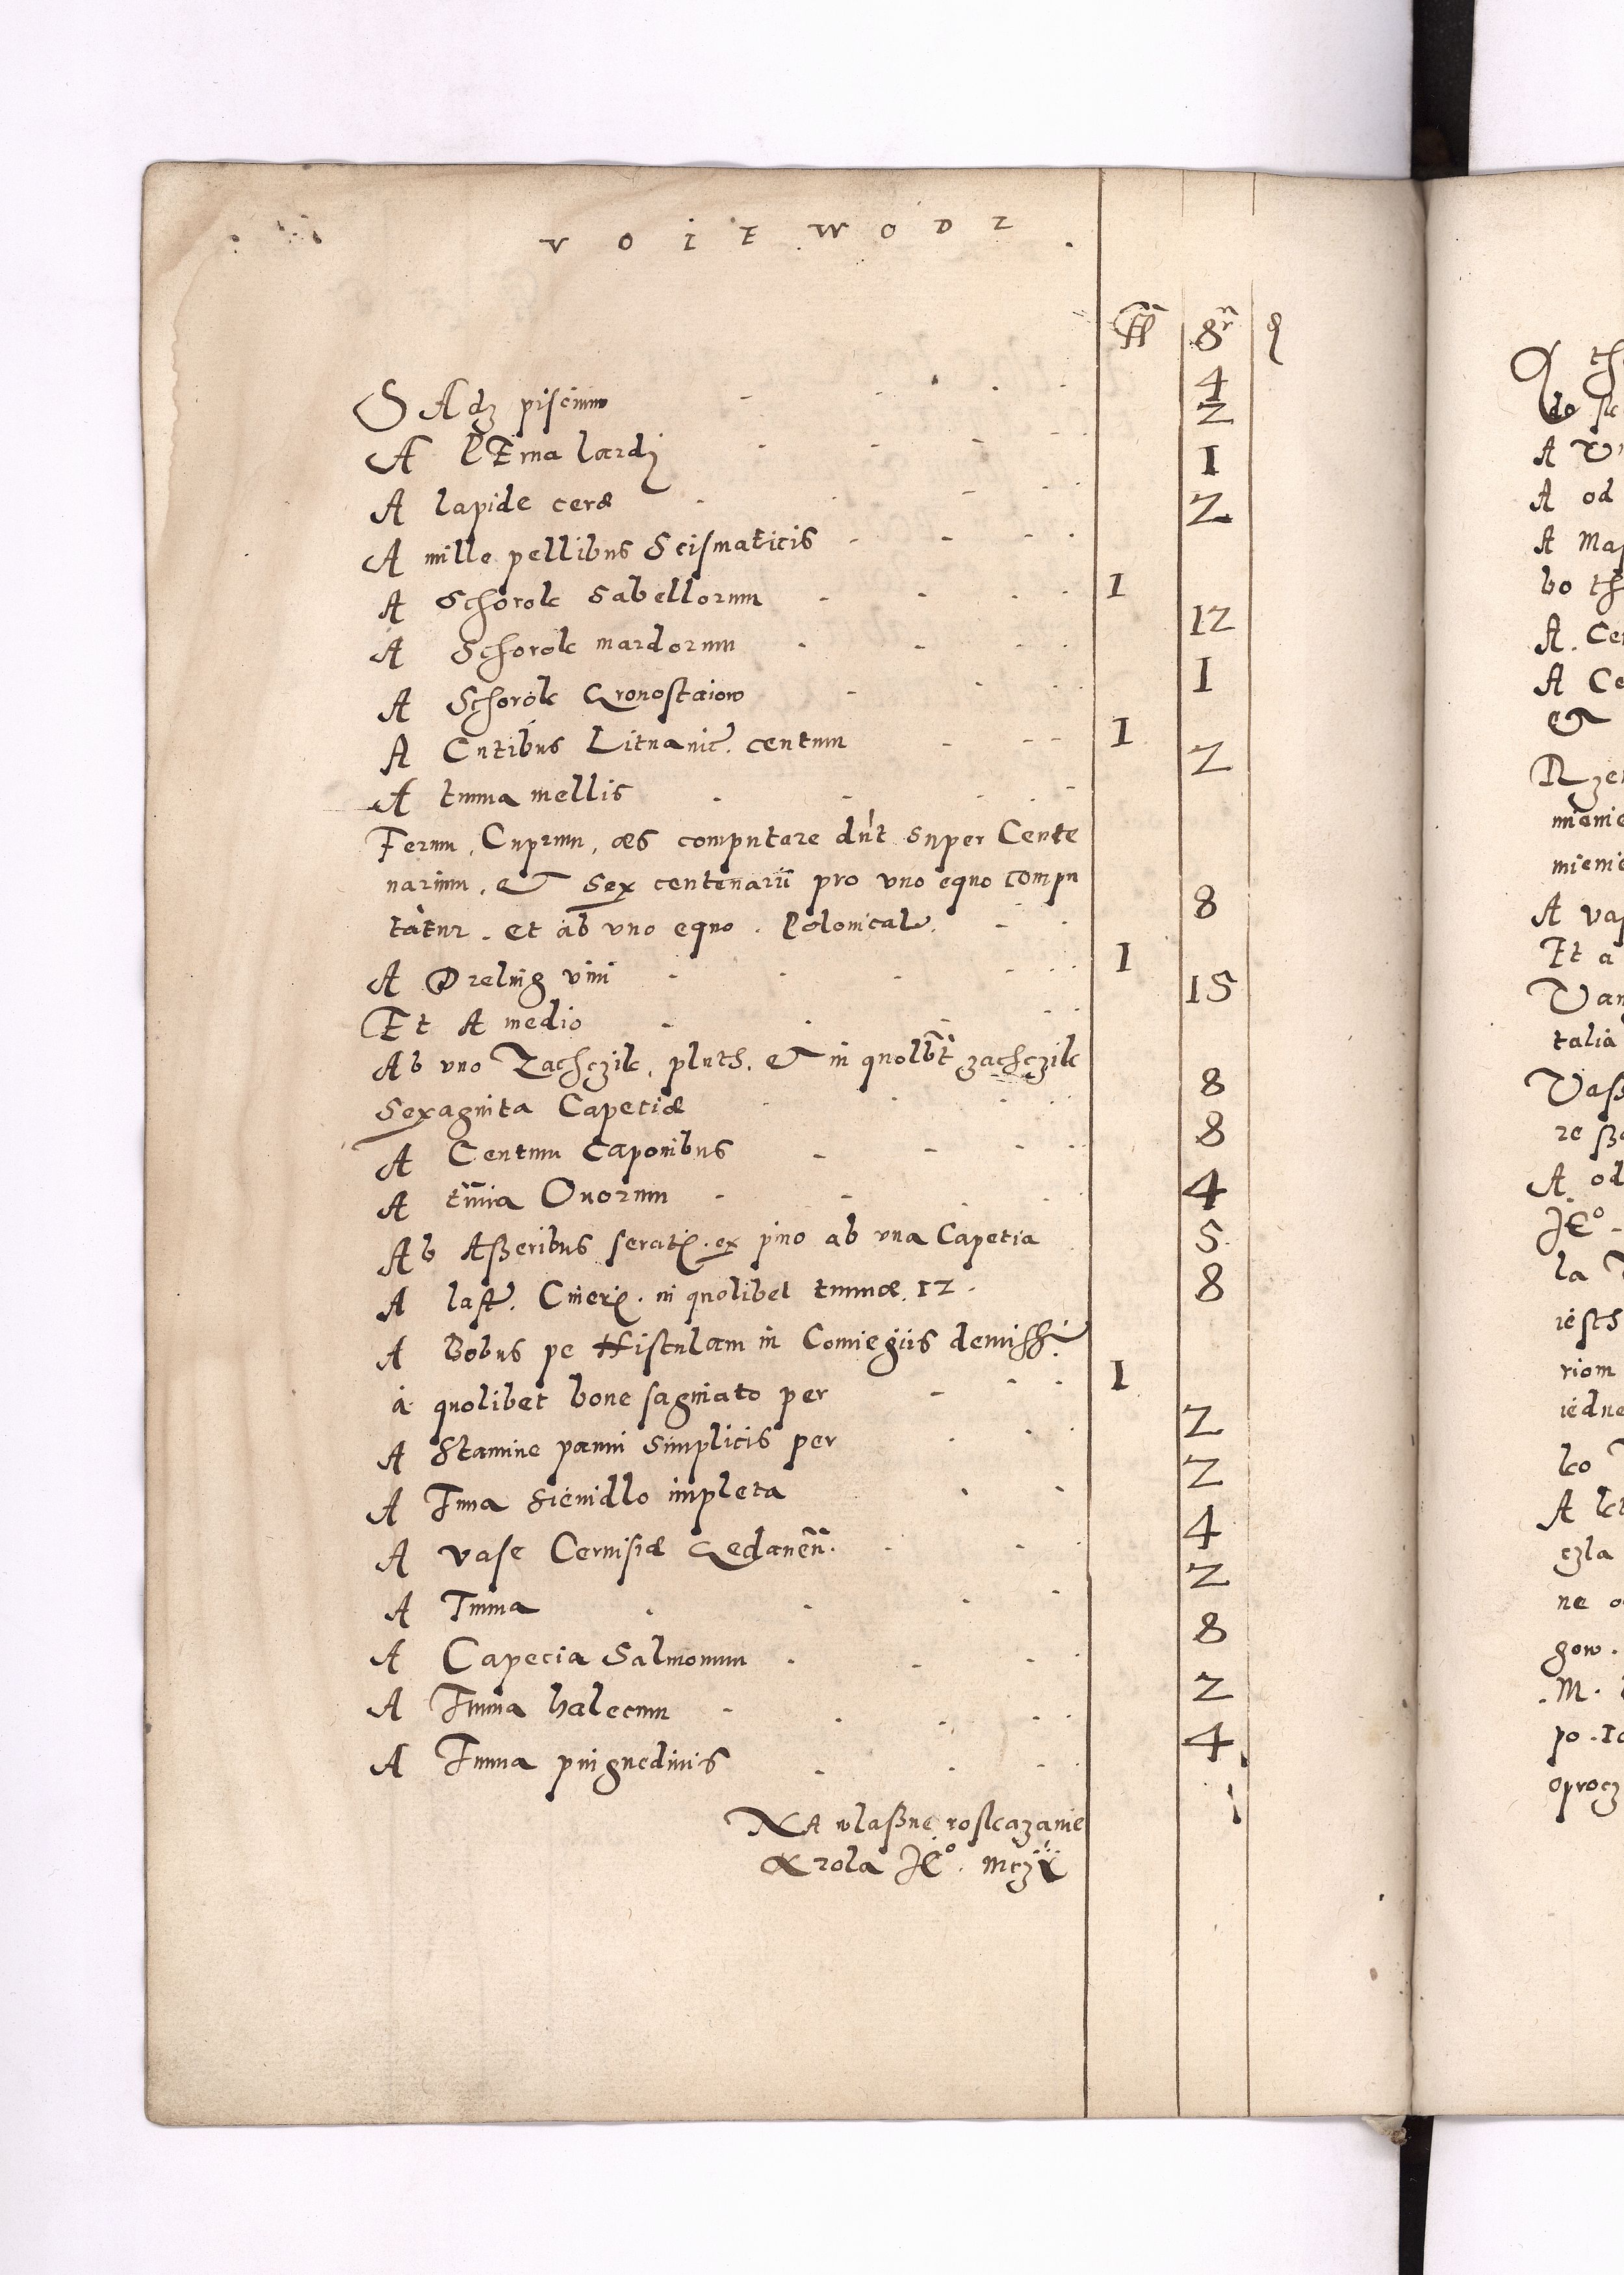 V O I E W O D Z
ffl gr q
S Adz piscium 4
A PErna lardj 2
A lapide ceræ 1
A mille pellibus Scismaticis 2
A Schorok Sabellorum 1
A Schorok mardorum 12
A Schorok Gronostaiow 1
A Cutibus Lituanic. centum 1
A tunna mellis 2
Ferrum, Cuprum, æs computare dnt super Cente
narium, et Sex centenariu pro uno equo compu
tatur. et ab uno equo. Polonicale. 8
A Dreling vini 1
Et A medio 15
Ab uno Zachczik, pluth. et in quolbt zachczik
Sexaginta Capeciæ 8
A Centum Caponibus 8
A tunna Ovorum 4
Ab Aßeribus serat. ex pino ab una Capetia 5
A last. Ciner. in quolibet tunnæ 12. 8
A Bobus pe Histulam in Comiegiis demiss.
a quolibet bone saginato per 1
A Stamine panni Simplicis per 2
A Tuna Sienidllo impleta 2
A vase Cervisiæ Gedanen. 4
A Tunna 2
A Capecia Salmonum 8
A Tunna halecum 2
A Tunna pinguedinis 4
NA wlaßne roskazanie
Krola JE°. Mczi
A
do
A
A od
A
bo
A. Ce
A Ce
et
Rze
mienie
mienie
A
Et a
talia
A od
JE°
la
riom
iedne
ko
A
czla
ne
gow.
. M.
po
oprocz